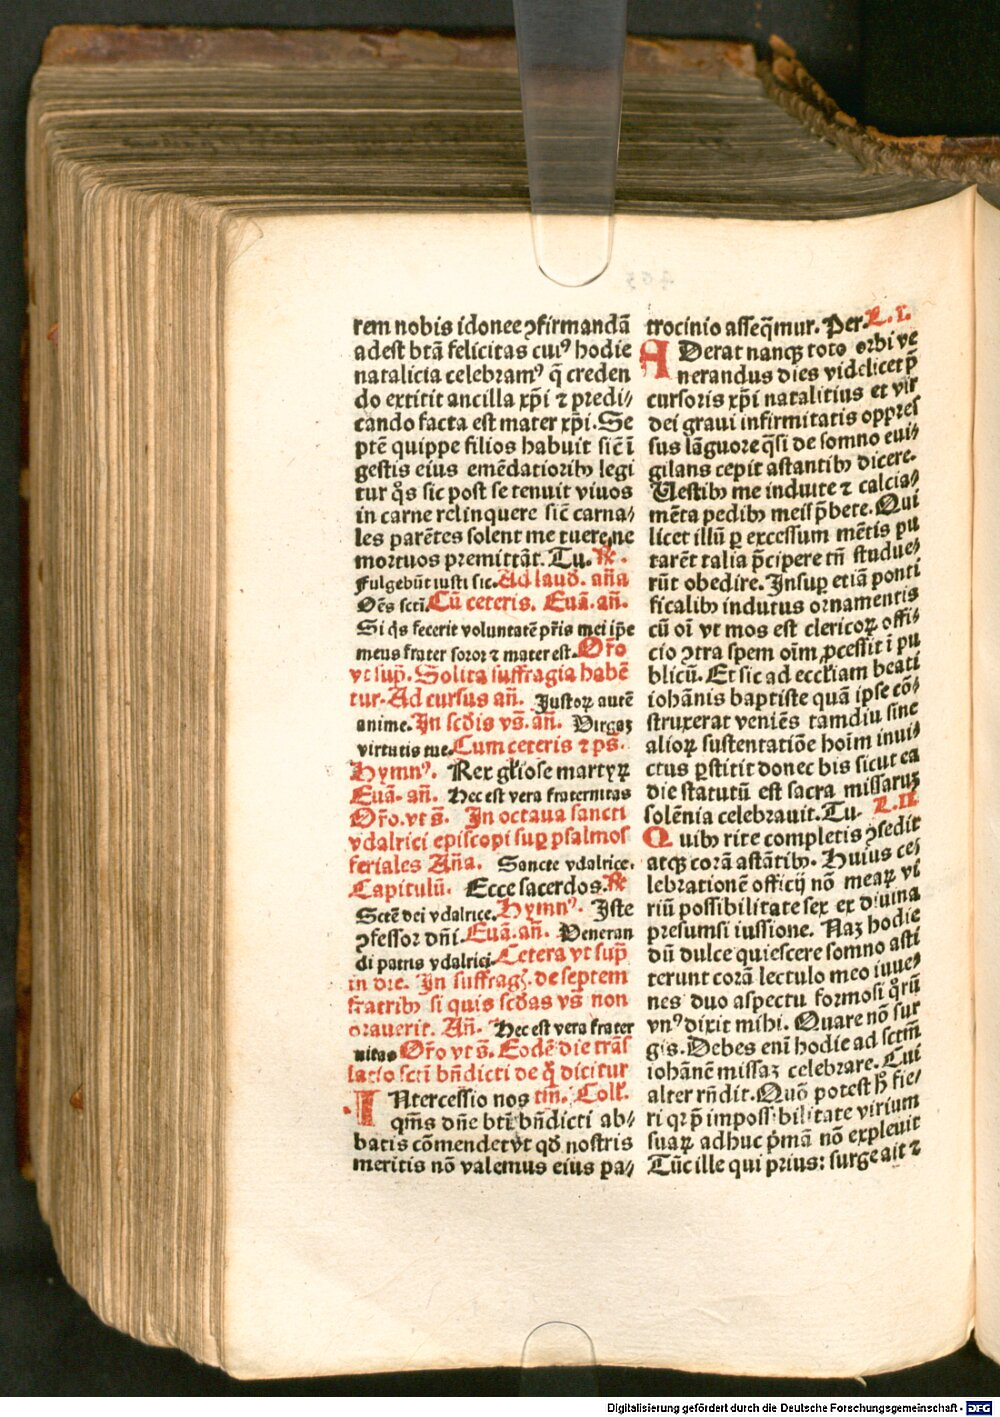 rem nobis idonee ꝯfirmandā
adest btā felicitas cuiꝰ hodie
natalicia celebramꝰ q̄ creden
do extitit ancilla xp̄i ⁊ predi/
cando facta est mater xp̄i. Se
ptē quippe filios habuit sic̄ ī
gestis eius emēdatioribꝫ legi
tur q̊s sic post se tenuit viuos
in carne relinquere sic̄ carna/
les parētes solent me tuere ne
mortuos premittāt. Tu. ℟.
Fulgebūt iusti sic. Ad laud. an̄a
Oēs scti. Cū ceteris. Euā. an̄.
Si q̇s fecerit voluntatē pr̄is mei ip̄e
meus frater soror ⁊ mater est. Or̄o
vt sup̄. Solita suffragia habē
tur. Ad cursus an̄. Justoꝝ autē
anime. In scd̄is vs̄. an̄. Virgaꝫ
virtutis tue. Cum ceteris ⁊ ps.
Hymnꝰ. Rex gl̄iose martyꝝ
Euā. an̄. Hec est vera fraternitas
Or̄o. vt s̄. In octaua sancti
vdalrici episcopi suꝑ psalmos
feriales An̄a. Sancte vdalrice.
Capitulū. Ecce sacerdos. ℟
Sctē dei vdalrice. Hymnꝰ. Iste
ꝯfessor dn̄i. Euā. an̄. Veneran
di patris vdalrici. Cetera vt sup̄
in die. In suffrag. de septem
fratribꝫ si quis scd̄as vs̄ non
orauerit. An̄. Hec est vera frater
nitas Or̄o vt s̄. Eodē die trās
latio scti bn̄dicti de q̊ dicitur
Intercessio nos tm̄. Coll'.
qm̄s dn̄e bti bn̄dicti ab/
batis cōmendet vt qd̄ nostris
meritis nō valemus eius pa/
trocinio asseq̄mur. Per. L. I.
Aderat nanqꝫ toto orbi ve
nerandus dies videlicet p̄
cursoris xp̄i natalitius et vir
dei graui infirmitatis oppres
sus lāguore q̄si de somno eui/
gilans cepit astantibꝫ dicere.
Vestibꝫ me induite ⁊ calcia/
mēta pedibꝫ meis p̄bete. Qui
licet illū ꝑ excessum mētis pu
tarēt talia p̄cipere tn̄ studue/
rūt obedire. Insuꝑ etiā ponti
ficalibꝫ indutus ornamentis
cū oī vt mos est clericoꝝ offi/
cio ꝯtra spem oīm ꝓcessit ī pu
blicū. Et sic ad eccl'iam beati
iohānis baptiste quā ipse cō/
struxerat veniēs tamdiu sine
alioꝝ sustentatiōe hoīm inui/
ctus ꝑstitit donec bis sicut ea
die statutū est sacra missaruꝫ
solēnia celebrauit. Tu. L. II
Quibꝫ rite completis ꝯsedit
atqꝫ corā astātibꝫ. Huius ce/
lebrationē officij nō meaꝝ vi
riū possibilitate sex ex diuina
presumsi iussione. Naꝫ hodie
dū dulce quiescere somno asti
terunt corā lectulo meo iuue/
nes duo aspectu formosi q̊rū
vnꝰ dixit mihi. Quare nō sur
gis. Debes enī hodie ad sctm̄
iohānē missaꝫ celebrare. Cui
alter rn̄dit. Quō potest h̄ fie/
ri qꝛ p̄ impossibilitate virium
suaꝝ adhuc p̄mā nō expleuit
Tūc ille qui prius: surge ait ⁊
Digitalisierung gefördert durch die Deutsche Forschungsgemeinschaft - DFG